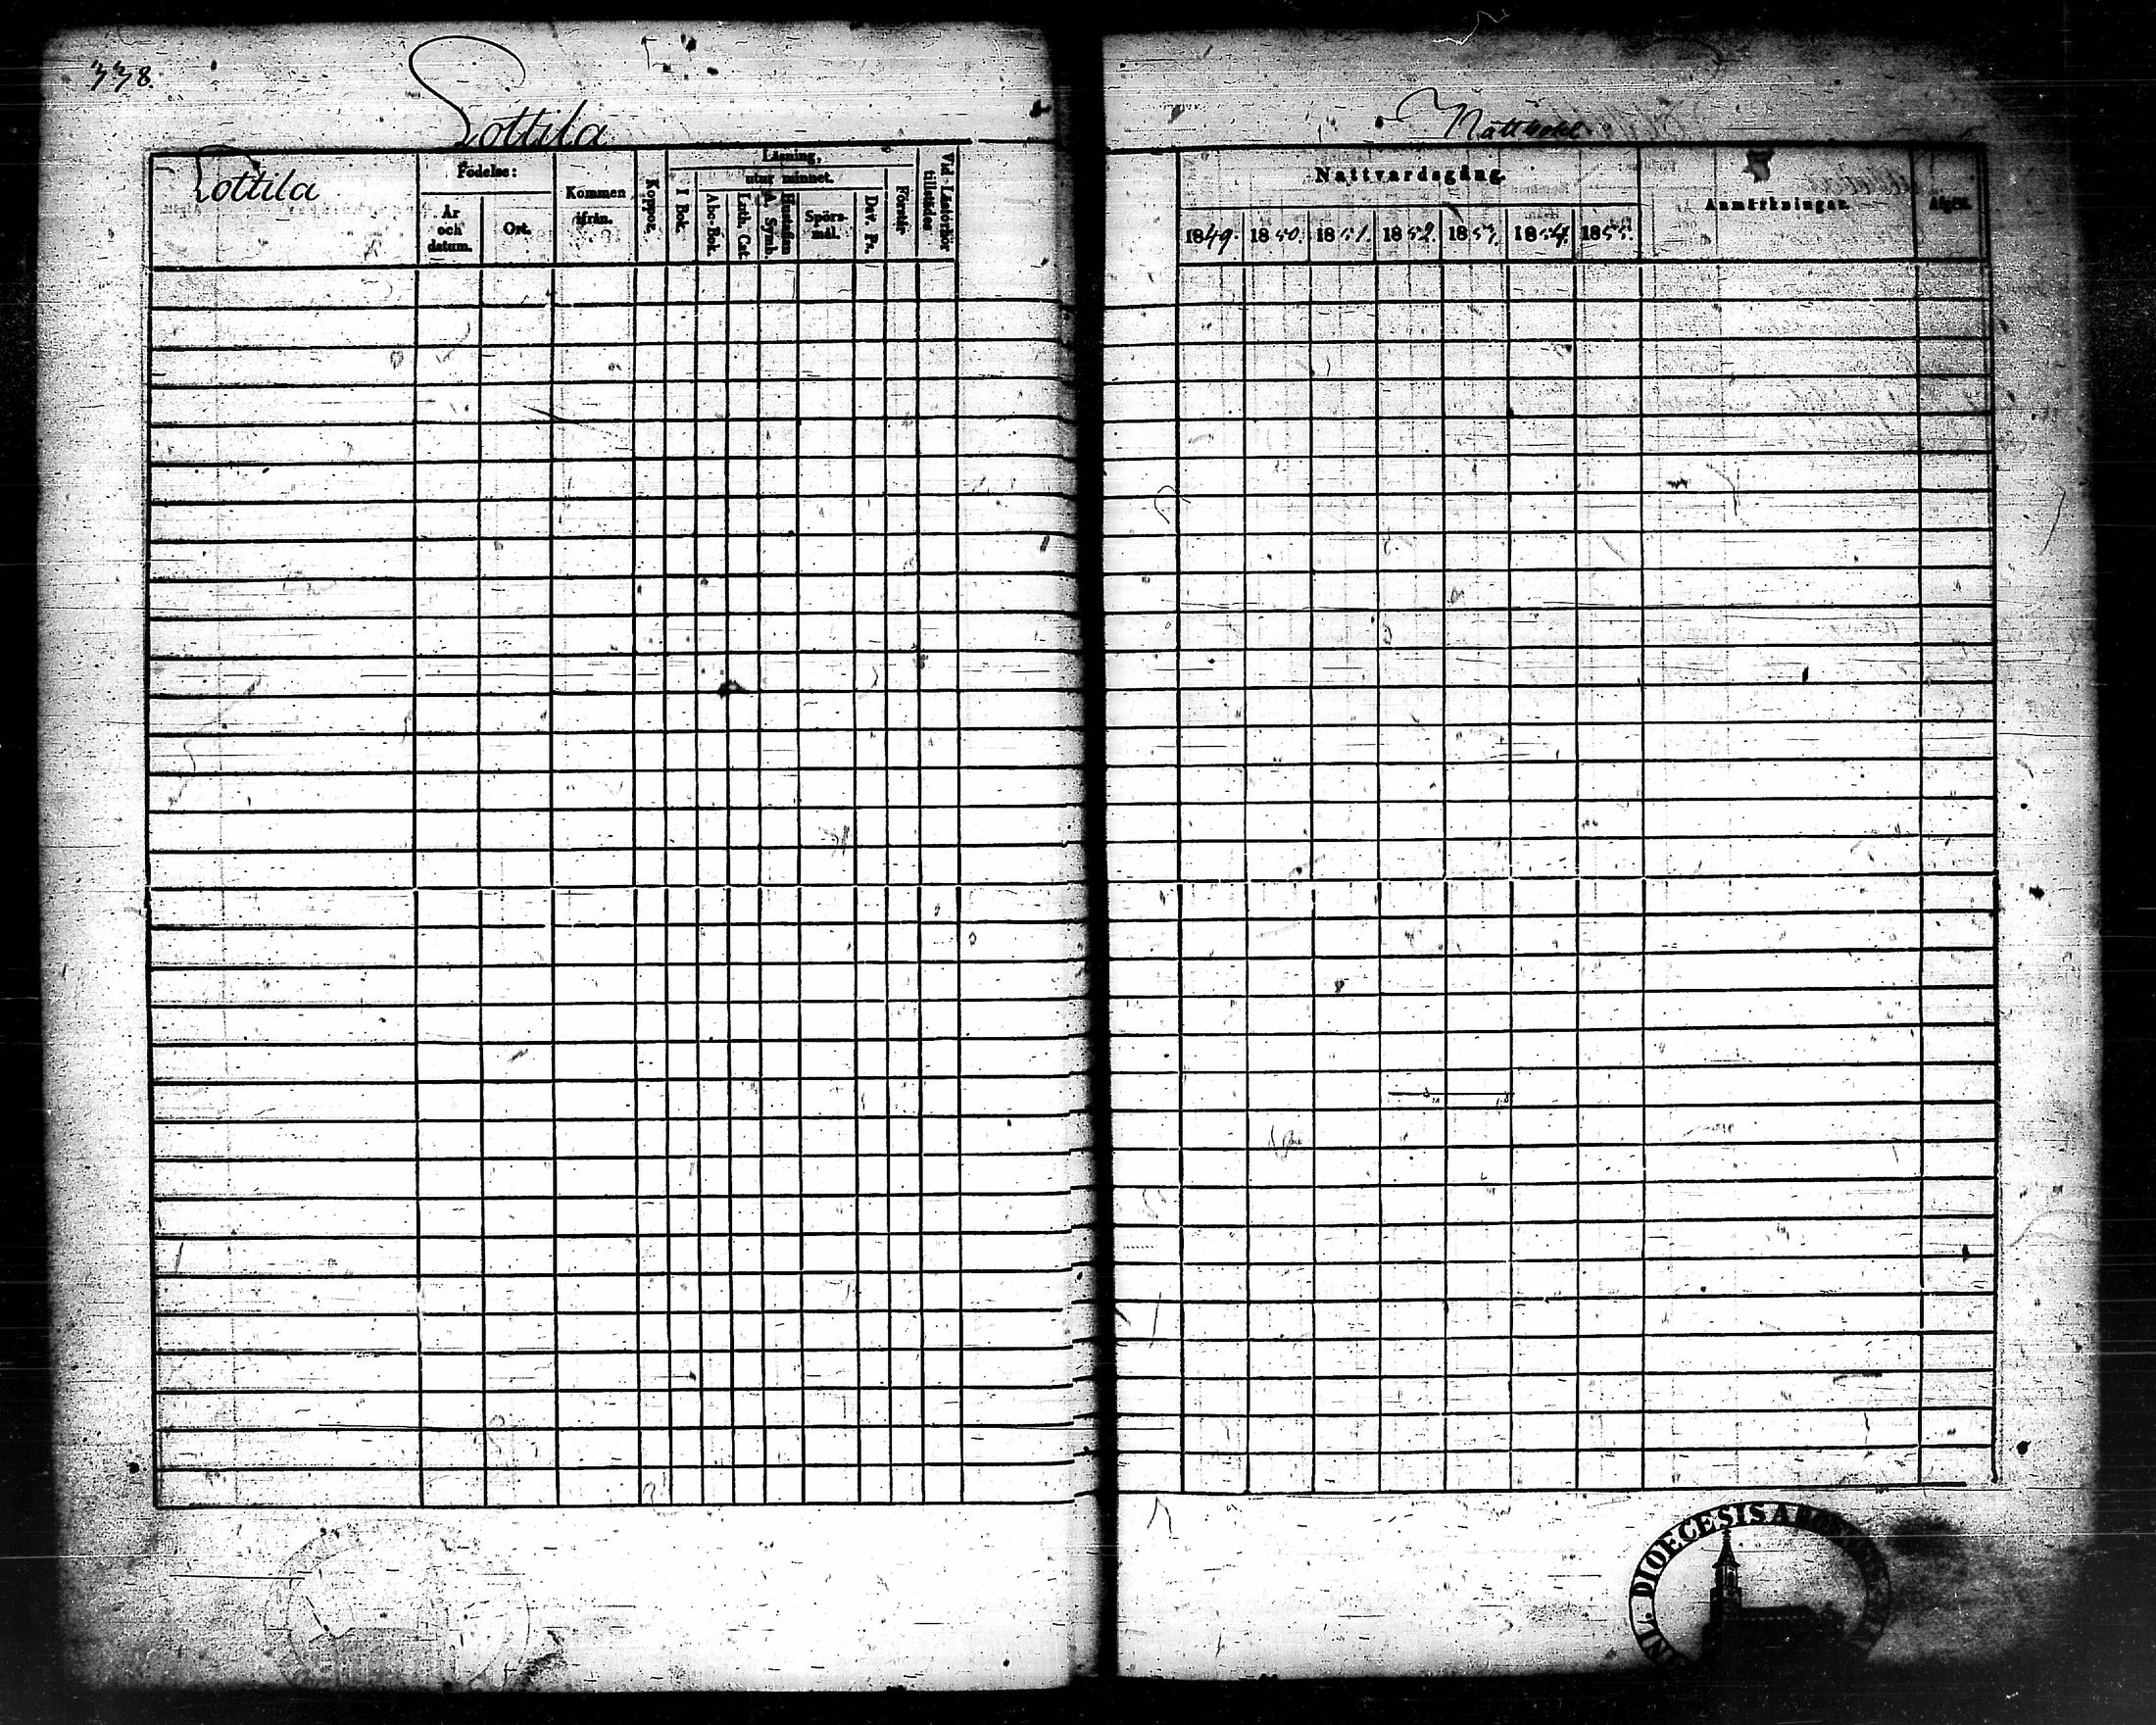 338.
Lottila
Lottila
Födelse:
År
och
datum.
Ort.
Kommen
ifrån.
Koppor.
Läsning,
utur minnet.
I Bok.
Abc-Bok.
Luth. Cat
Hustaflan
A. Symb.
Spörs-
mål.
Dav. Ps.
Förstår
Vid Läsförhör
tillstädes
Nattvardsgång.
1849.
1850.
1851.
1852.
1853.
1854.
1855.
Anmärkningar.
Afgått.
DIOECESIS ABOENSIS